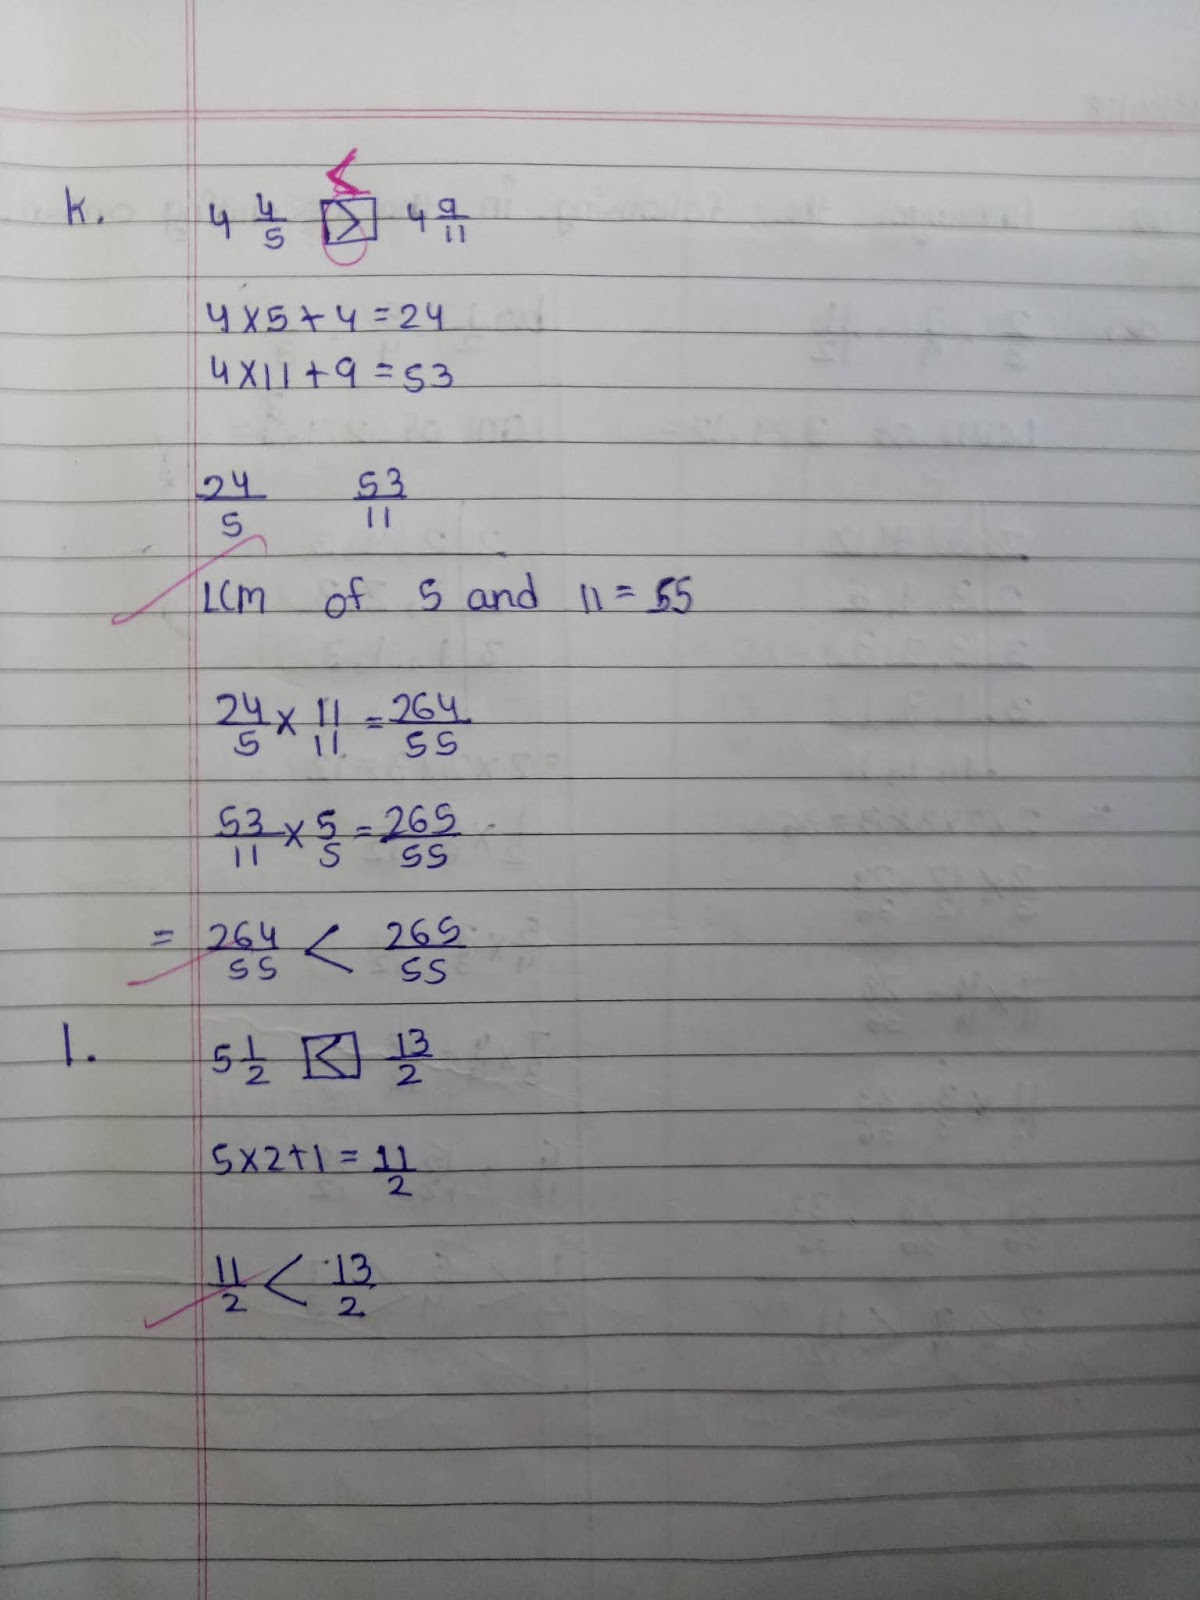 <
k. 4 4/5 [>] 4 9/11
4×5+4=24
4×11+9=53
24/5 53/11
LCM of 5 and 11=55
24/5 × 11/11 = 264/55
53/11 × 5/5 = 265/55
= 264/55 < 265/55
l. 5 1/2 [<] 13/2
5×2+1=11/2
11/2 < 13/2